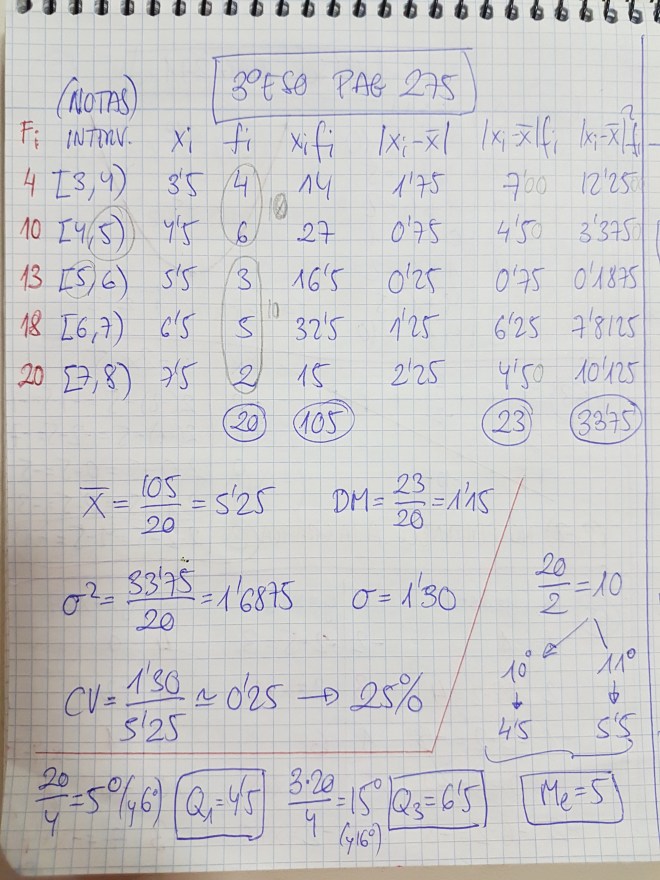 3º ESO PAG 275
(NOTAS)
Fi INTERV. xi fi xifi |xi-x̄| |xi-x̄|fi |xi-x̄|²fi
4 [3,4) 3'5 4 14 1'75 7'00 12'250
10 [4,5) 4'5 6 27 0'75 4'50 3'3750
13 [5,6) 5'5 3 16'5 0'25 0'75 0'1875
18 [6,7) 6'5 5 32'5 1'25 6'25 7'8125
20 [7,8) 7'5 2 15 2'25 4'50 10'125
10
10
20 105 23 33'75
x̄ = 105/20 = 5'25 DM = 23/20 = 1'15
σ² = 33'75/20 = 1'6875 σ = 1'30
CV = 1'30/5'25 ≃ 0'25 → 25%
20/2 = 10
10º 11º
4'5 5'5
20/4 = 5º (y 6º) Q1 = 4'5 3·20/4 = 15º (y 16º) Q3 = 6'5 Me = 5